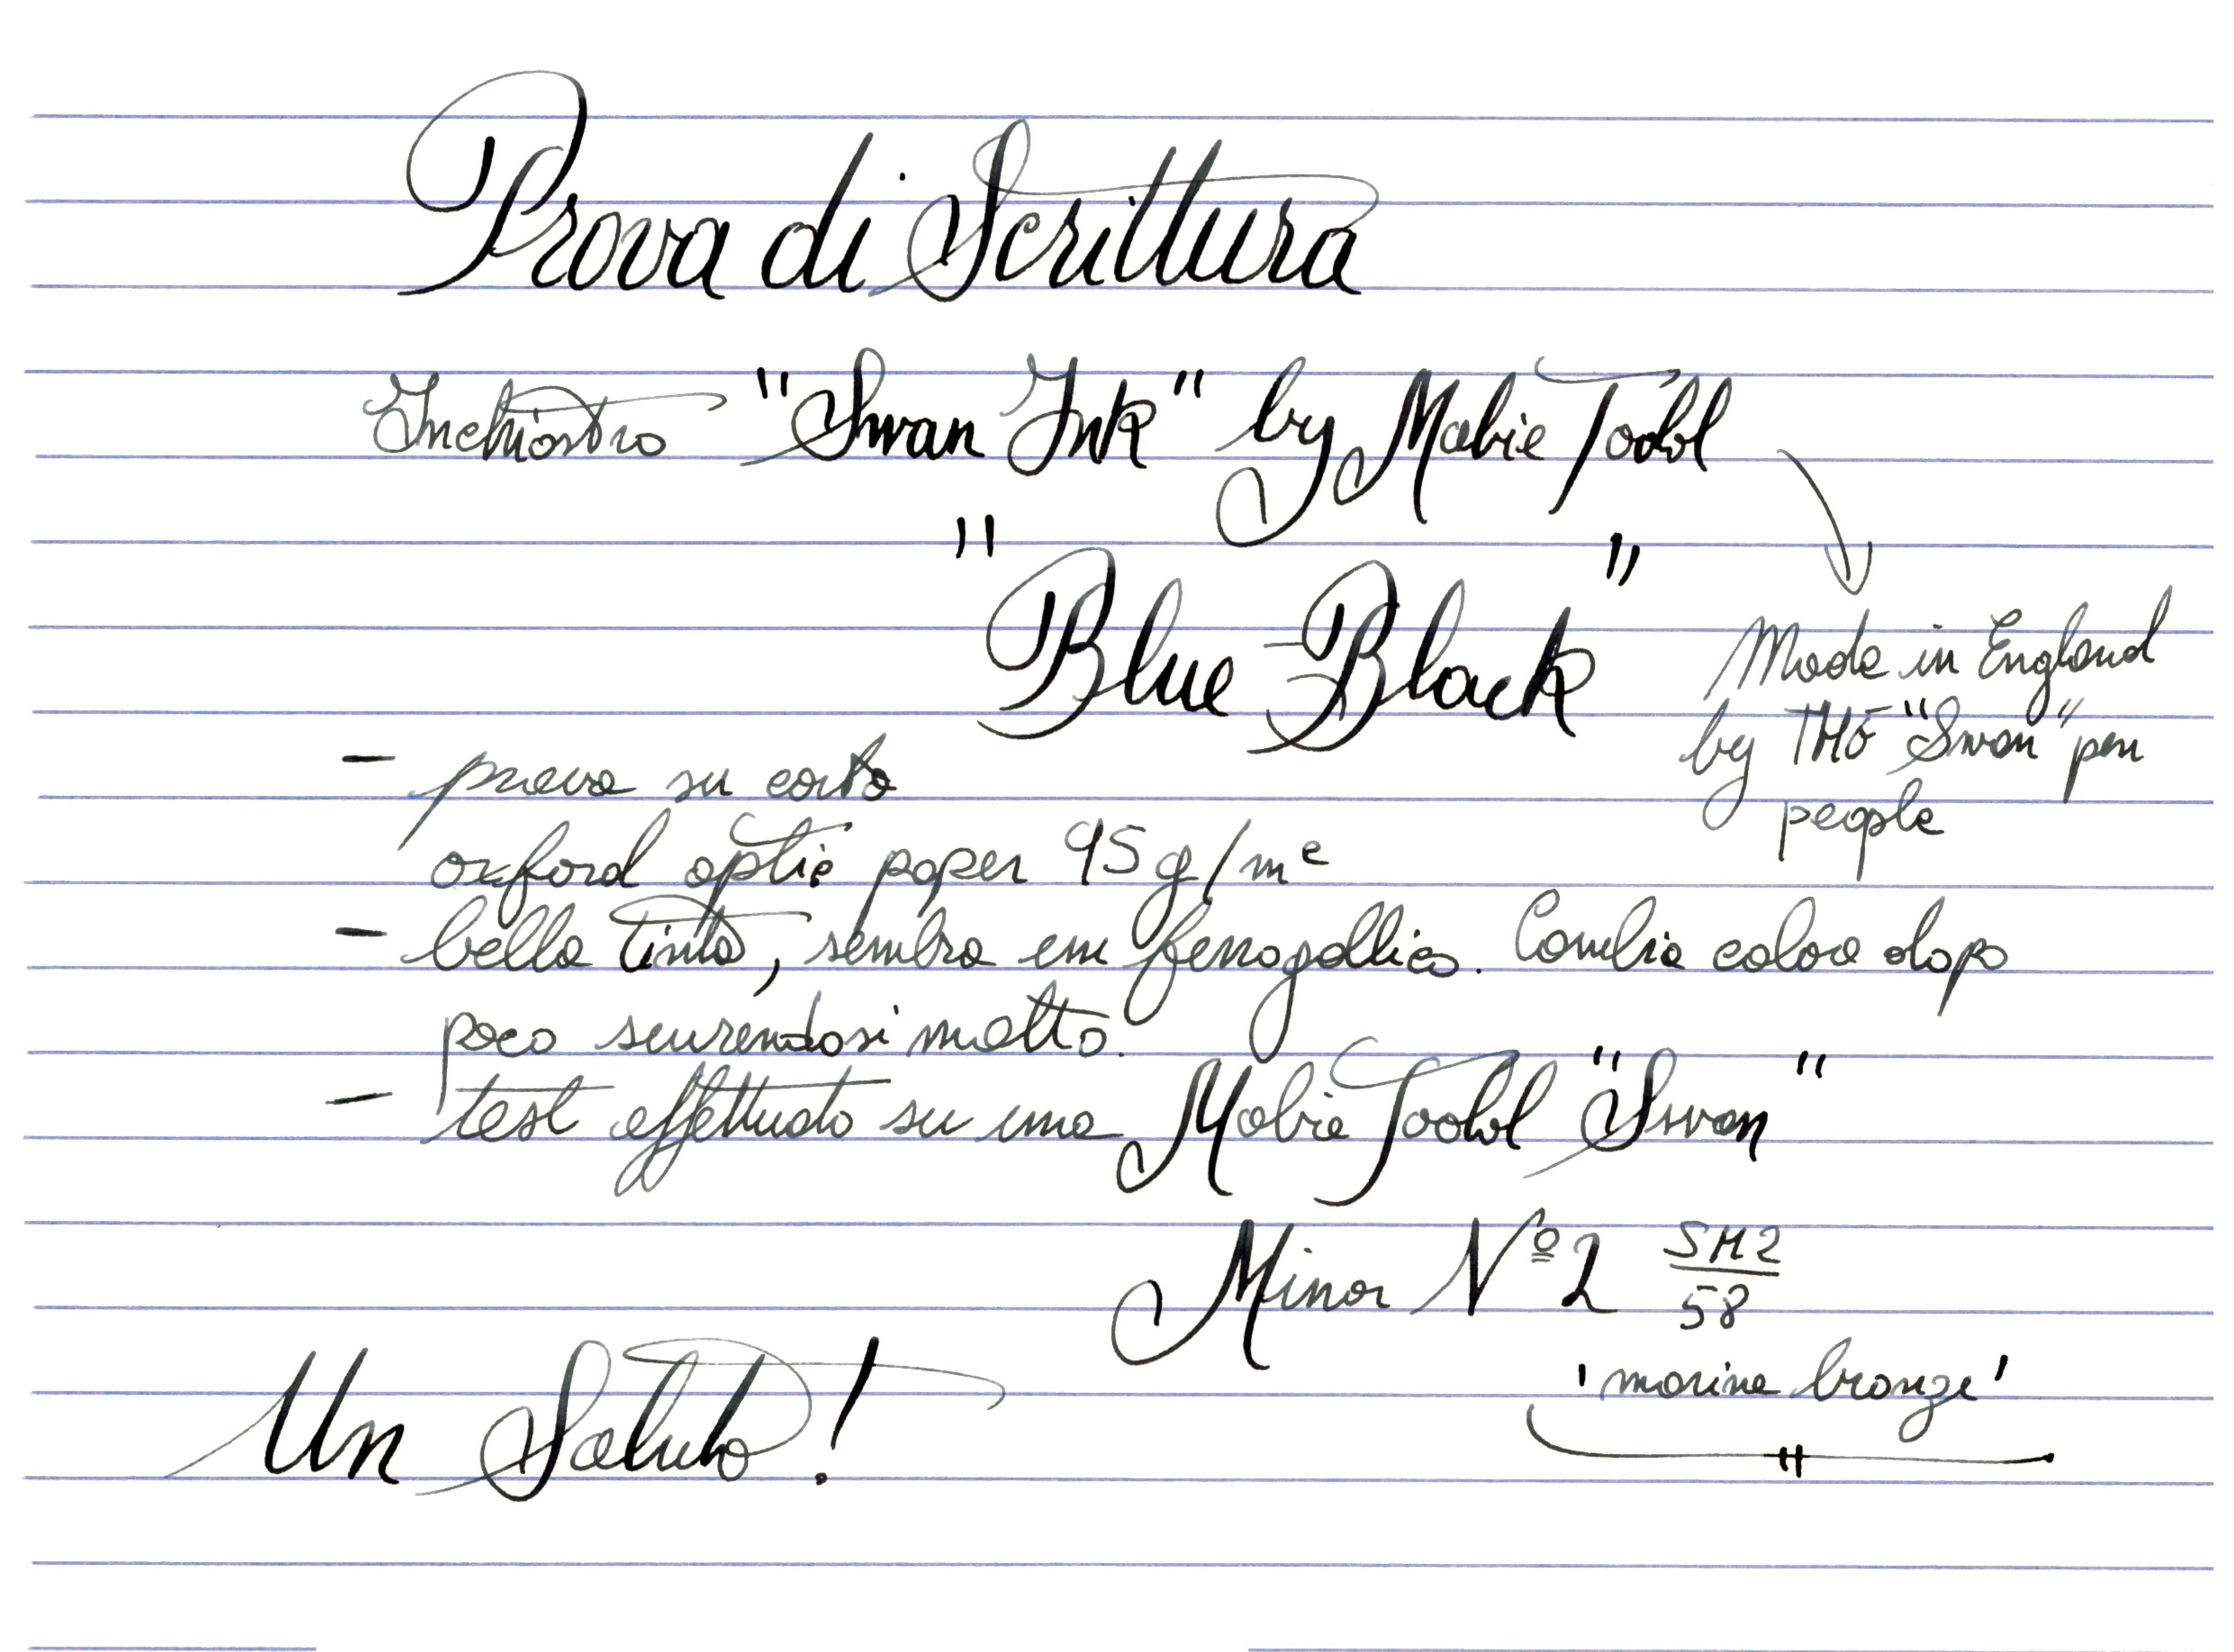 Prova di Scrittura
Inchiostro "Swan Ink" by Mabie Todd
"Blue Black"
Made in England
by THE "Swan" pen
people
- prova su carta
oxford optic paper 95 g/m²
- bella tinta, sembra un ferrogallico. Cambia colore dopo
poco scurendosi molto.
- test effettuato su una Mabie Todd "Swan"
Minor Nº 2 SM2/58
'marine bronze'
Un Saluto!